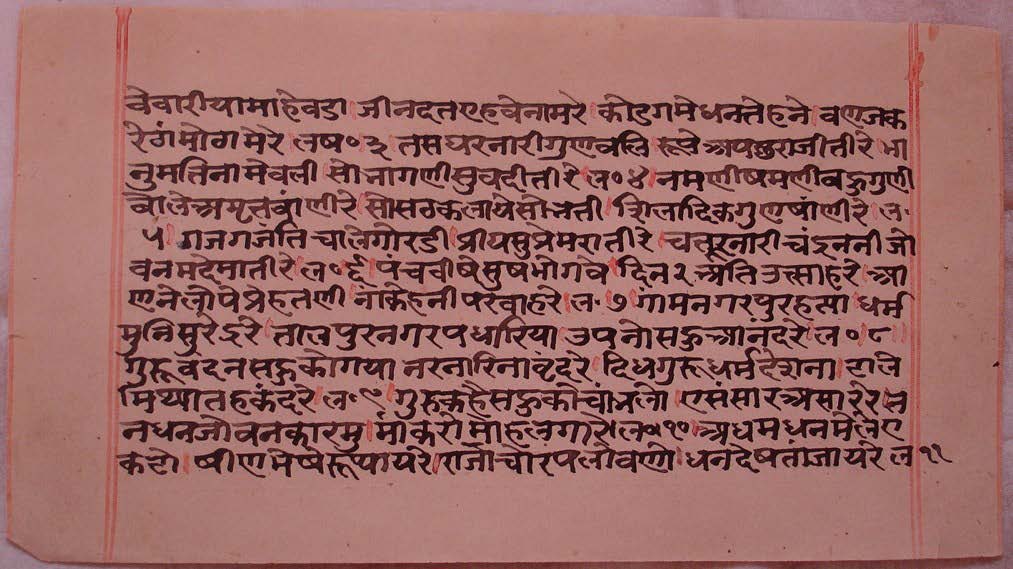 वेवारीयामाहेवडा जीनदतएहवेनामरे कोडगमेधनतेहने वणजक
रेठांमोठामेरे लष०३ तसघरनारीगुणवलि रूपेअपछराजीतीरे भा
नुमतिनामेवली सोभागणीसुवदीतीरे ल०४ नमणीषमणीबहुगुणी
बोलेअमृतवांणीरे सोसठकलायेसोभती शिलादिकगुणषांणीरे ल०
५ गजगजंतिचालेगोरडी प्रीयसुप्रेमरातीरे चतूरनारीचंद्राननी जो
वनमदेमातीरे ल०६ पंचवीषेसुषभोगवे दिन२अतिउत्साहरे आ
णनेलोपेत्रेहतणी नाकेहनीपरवाहरे ल०७ गामनगरपुरहत्सा धर्म
मुनिसुरेंदरे तालपुरनगरपधारिया उपनोसहुआनंदरे ल०८
गुरूवंदनसहुकोगया नरनारिनावृंदरे दिधगुरूधर्मदेशना टाले
मिथ्यातहकंदरे ल०९ गुरुकहैसहुकोसांभलो एसंसारअसाररे त
नधनजोवनकारमु मांकरोमोहलगाररे ल०१० अथमधनमेलए
कठो षीणमेषेरूथायरे राजाचोरपलोवणी धनदेषतांजायरे ल११